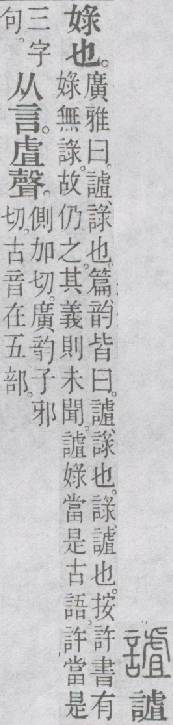 謯 謯
娽也。
廣雅曰。謯、䛵也。篇、韵皆曰。謯、䛵也。䛵、謯也。按許書有
娽無䛵。故仍之。其義則未聞。謯娽當是古語。許當是
三字
句。
从言。虘聲。
側加切。廣韵子邪
切。古音在五部。